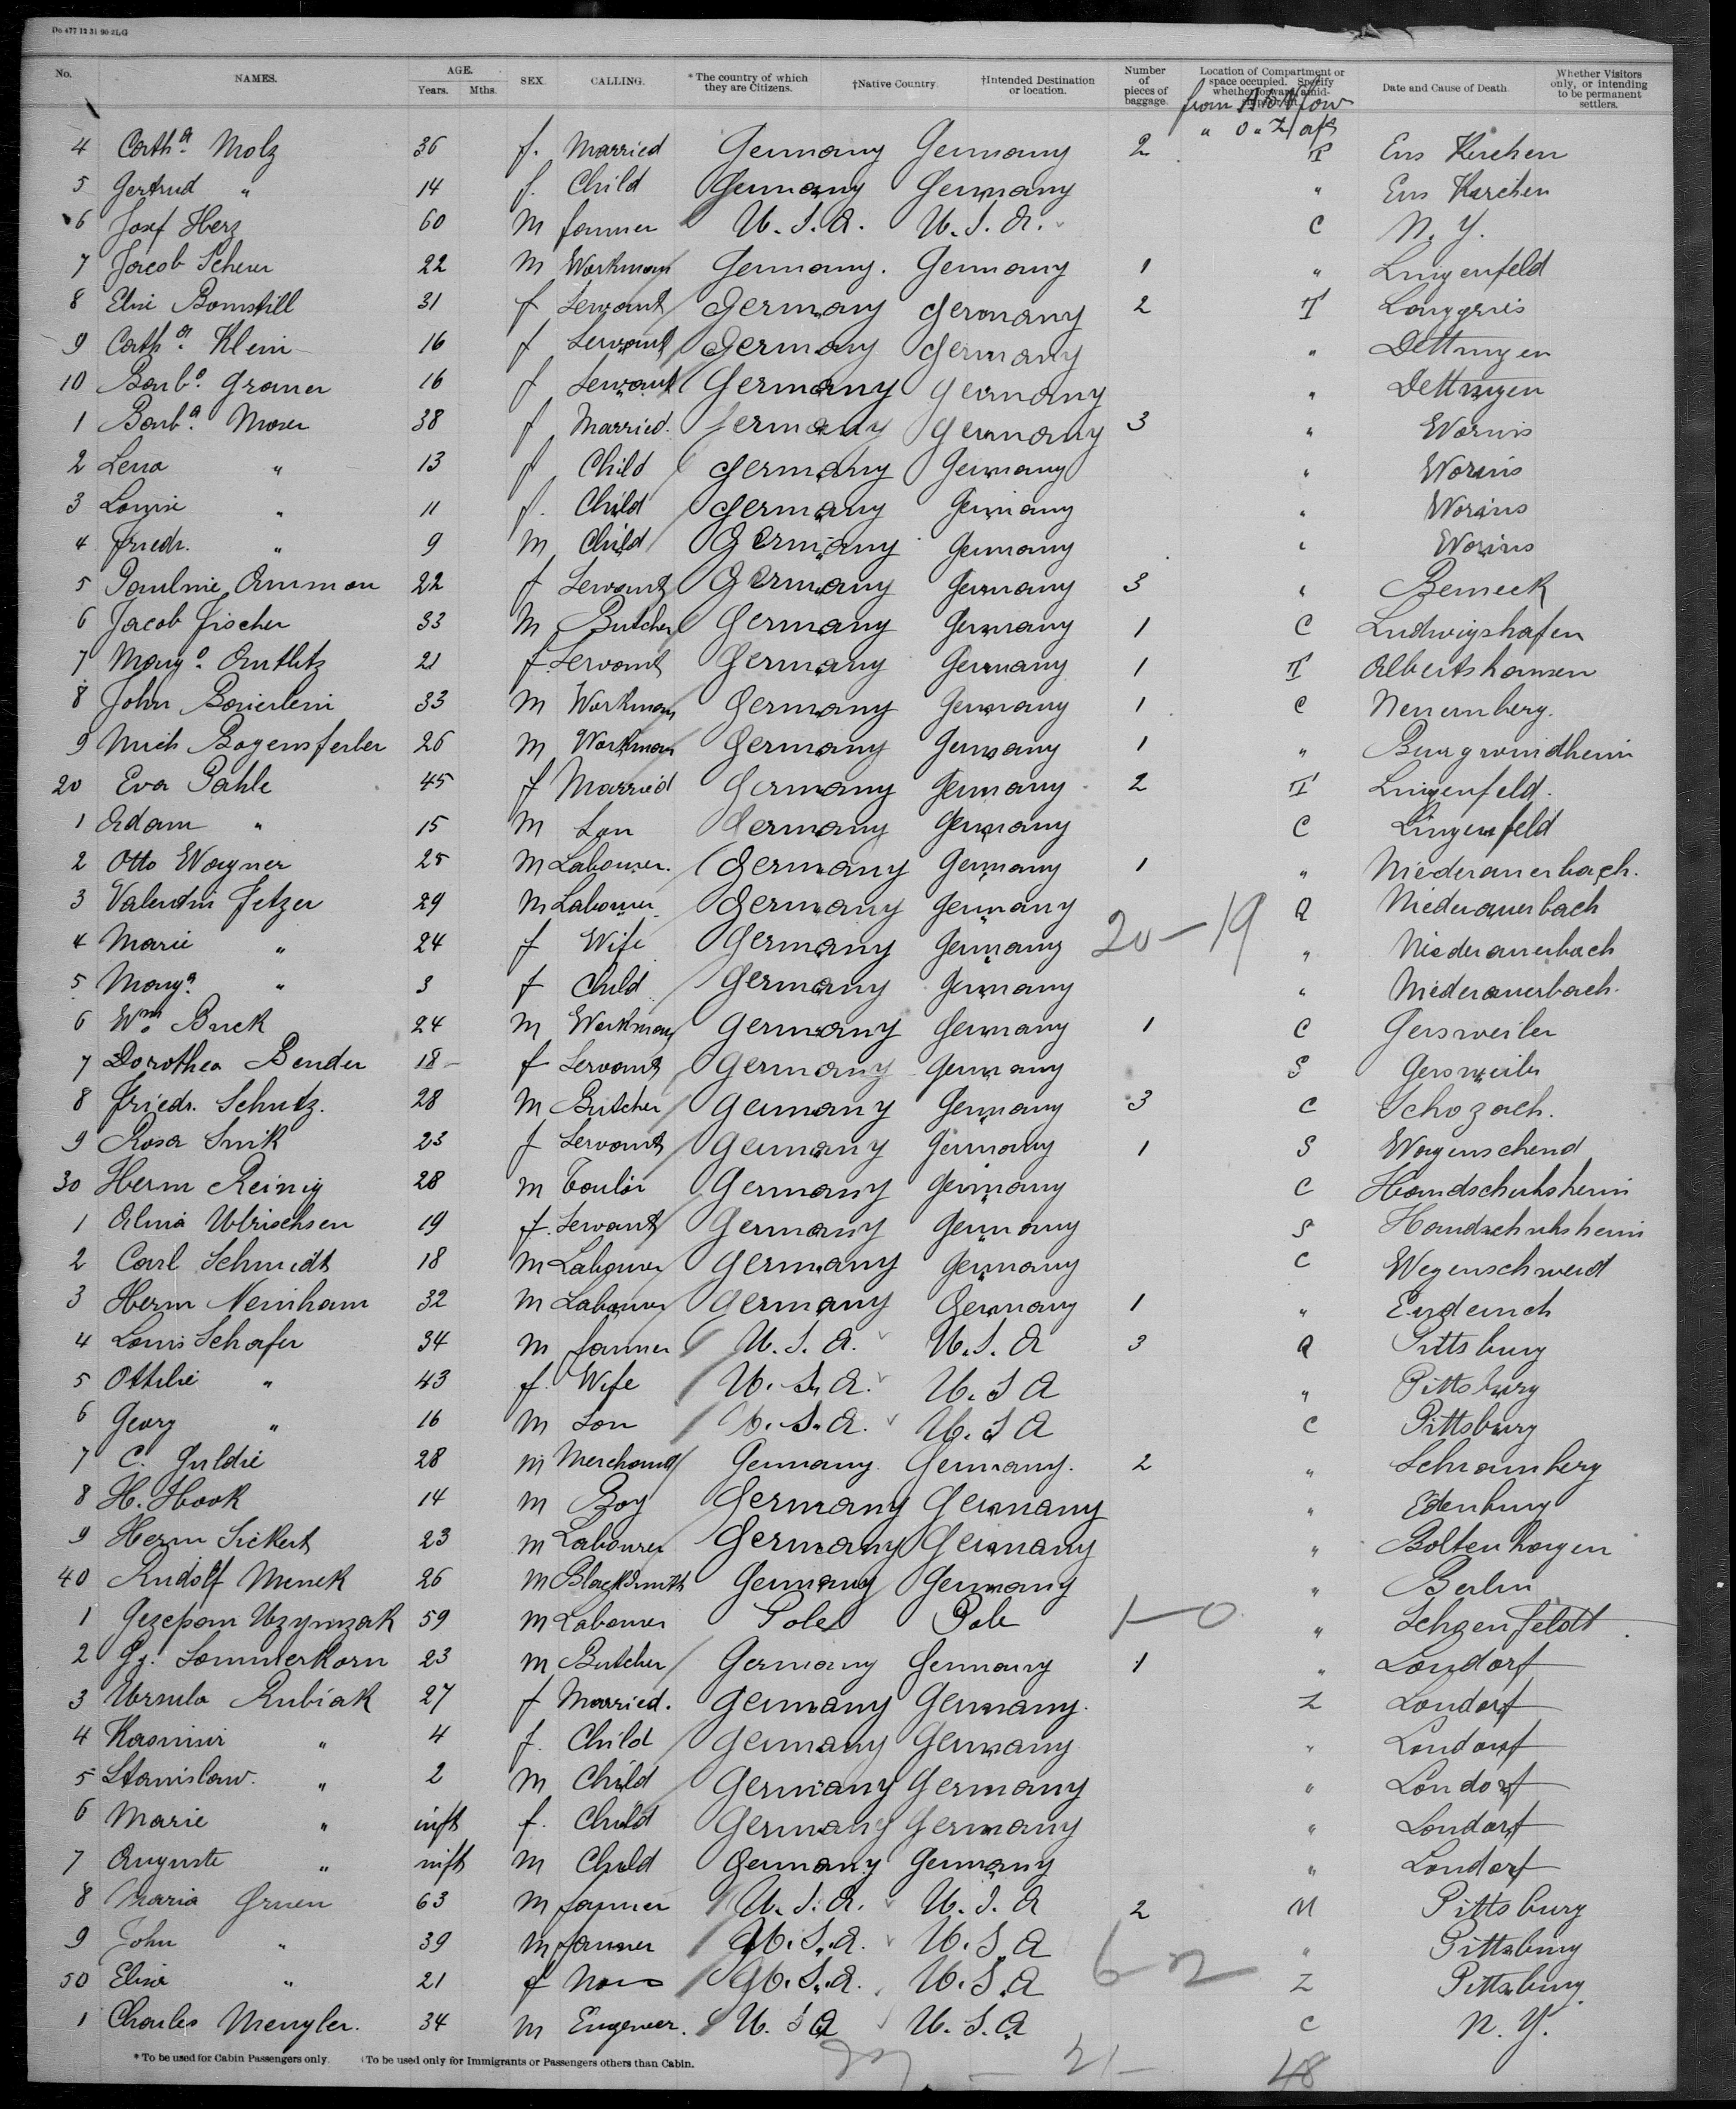 Do 477 12 31 90 2LG
No. NAMES. AGE. Years. Mths. SEX. CALLING. *The country of which they are Citizens. †Native Country. †Intended Destination or location. Number of pieces of baggage. Location of Compartment or space occupied. Specify whether forward, amid- Date and Cause of Death. Whether Visitors only, or intending to be permanent settlers.
from fow
" o " Z / aft
4 Cath.a Molz 36 f. Married Germany Germany 2 Kirchen
5 Gertrud " 14 f. Child Germany Germany " Kirchen
6 Josef Herz 60 M farmer U.S.A. U.S.A. C N.Y.
7 Jacob Scherer 22 M Workman Germany. Germany 1 " Lingenfeld
8 Elise 31 f Servant Germany Germany 2
9 Cath.a Klein 16 f Servant Germany Germany " Dettingen
10 Barb.a 16 f Servant Germany Germany " Dettingen
1 Barb.a Moser 38 f Married. Germany Germany 3 " Worms
2 Lena " 13 f Child Germany Germany " Worms
3 Louise " 11 f. Child Germany Germany " Worms
4 Friedr. " 9 M Child Germany Germany " Worms
5 Pauline Amman 22 f Servant Germany Germany 3 " Berneck
6 Jacob Fischer 33 M Butcher Germany Germany 1 C Ludwigshafen
7 Marg.a 21 f. Servant Germany Germany 1 Albertshausen
8 John Baierlein 33 M Workman Germany Germany 1 C
9 Mich 26 M Workman Germany Germany 1 " Burgwindheim
20 Eva Pahle 45 f Married Germany Germany 2 Lingenfeld.
1 Adam " 15 M Son Germany Germany C Lingenfeld
2 Otto Wagner 25 M Labourer. Germany Germany 1 " Niederauerbach.
3 Valentin Fetzer 29 M Labourer Germany Germany Q Niederauerbach
4 Marie " 24 f Wife Germany Germany 20-19 " Niederauerbach
5 Marg.a " 3 f Child Germany Germany " Niederauerbach.
6 Wm. Buck 24 M Workman Germany Germany 1 C Gersweiler
7 Dorothea Bender 18 f Servant Germany Germany S Gersweiler
8 Friedr. Schutz. 28 M Butcher Germany Germany 3 C Schozach.
9 Rosa 23 f Servant Germany Germany 1 S
30 Herm Reinig 28 M Germany Germany C Handschuhsheim
1 Ulrischsen 19 f. Servant Germany Germany S Handschuhsheim
2 Carl Schmidt 18 M Labourer Germany Germany C
3 Herm 32 M Labourer Germany Germany 1 "
4 Louis Schafer 34 M farmer U.S.A. U.S.A 3 Q Pittsburg
5 Ottilie " 43 f. Wife U.S.A. U.S A " Pittsburg
6 Georg " 16 M Son U.S.A. U.S A C Pittsburg
7 C. Guldie 28 M Merchant Germany Germany. 2 " Schramberg
8 H. Hook 14 M Boy Germany Germany "
9 Herm Sickert 23 M Labourer Germany Germany " Boltenhagen
40 Rudolf Menek 26 M Blacksmith Germany Germany " Berlin
1 59 M Labourer Pole Pole 1-0 "
2 Gg. Sommerkorn 23 M Butcher Germany Germany 1 " Londorf
3 Ursula Rubiak 27 f Married. Germany Germany. Z Londorf
4 Kasimir " 4 f. Child Germany Germany " Londorf
5 Stanislaw. " 2 M Child Germany Germany " Londorf
6 Marie " inft f. Child Germany Germany " Londorf
7 Auguste " inft M Child Germany Germany " Londorf
8 Maria Gruen 63 M farmer U.S.A. U.S.A 2 M Pittsburg
9 John " 39 M farmer U.S.A. U.S.A " Pittsburg
50 Elise " 21 f U.S.A. U.S.A 6-2 Z Pittsburg
1 Charles Mengler. 34 M Engeneer. U.S A U.S.A C N.Y.
*To be used for Cabin Passengers only. †To be used only for Immigrants or Passengers others than Cabin.
27 - 21- 48